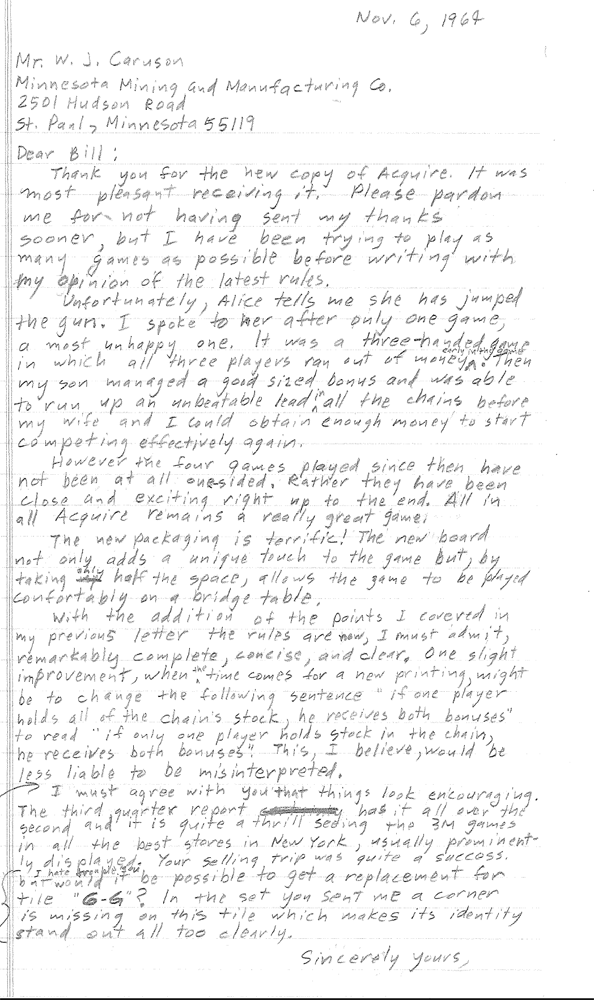 Nov. 6, 1964
Mr. W. J. Caruson
Minnesota Mining and Manufacturing Co.
2501 Hudson Road
St. Paul, Minnesota 55119
Dear Bill:
Thank you for the new copy of Acquire. It was
most pleasant receiving it. Please pardon
me for not having sent my thanks
sooner, but I have been trying to play as
many games as possible before writing with
my opinion of the latest rules.
Unfortunately, Alice tells me she has jumped
the gun. I spoke to her after only one game,
a most unhappy one. It was a three-handed game
in which all three players ran out of money early in the game. Then
my son managed a good sized bonus and was able
to run up an unbeatable lead in all the chains before
my wife and I could obtain enough money to start
competing effectively again.
However the four games played since then have
not been at all one-sided. Rather they have been
close and exciting right up to the end. All in
all Acquire remains a really great game.
The new packaging is terrific! The new board
not only adds a unique touch to the game but, by
taking only half the space, allows the game to be played
confortably on a bridge table.
With the addition of the points I covered in
my previous letter the rules are now, I must admit,
remarkably complete, concise, and clear. One slight
improvement, when the time comes for a new printing, might
be to change the following sentence "if one player
holds all of the chain's stock, he receives both bonuses"
to read "if only one player holds stock in the chain,
he receives both bonuses". This, I believe, would be
less liable to be misinterpreted.
I must agree with you that things look encouraging.
The third quarter report has it all over the
second and it is quite a thrill seeing the 3M games
in all the best stores in New York, usually prominent-
ly displayed. Your selling trip was quite a success.
I hate to trouble you
but would it be possible to get a replacement for
tile "6-G"? In the set you sent me a corner
is missing on this tile which makes its identity
stand out all too clearly.
Sincerely yours,